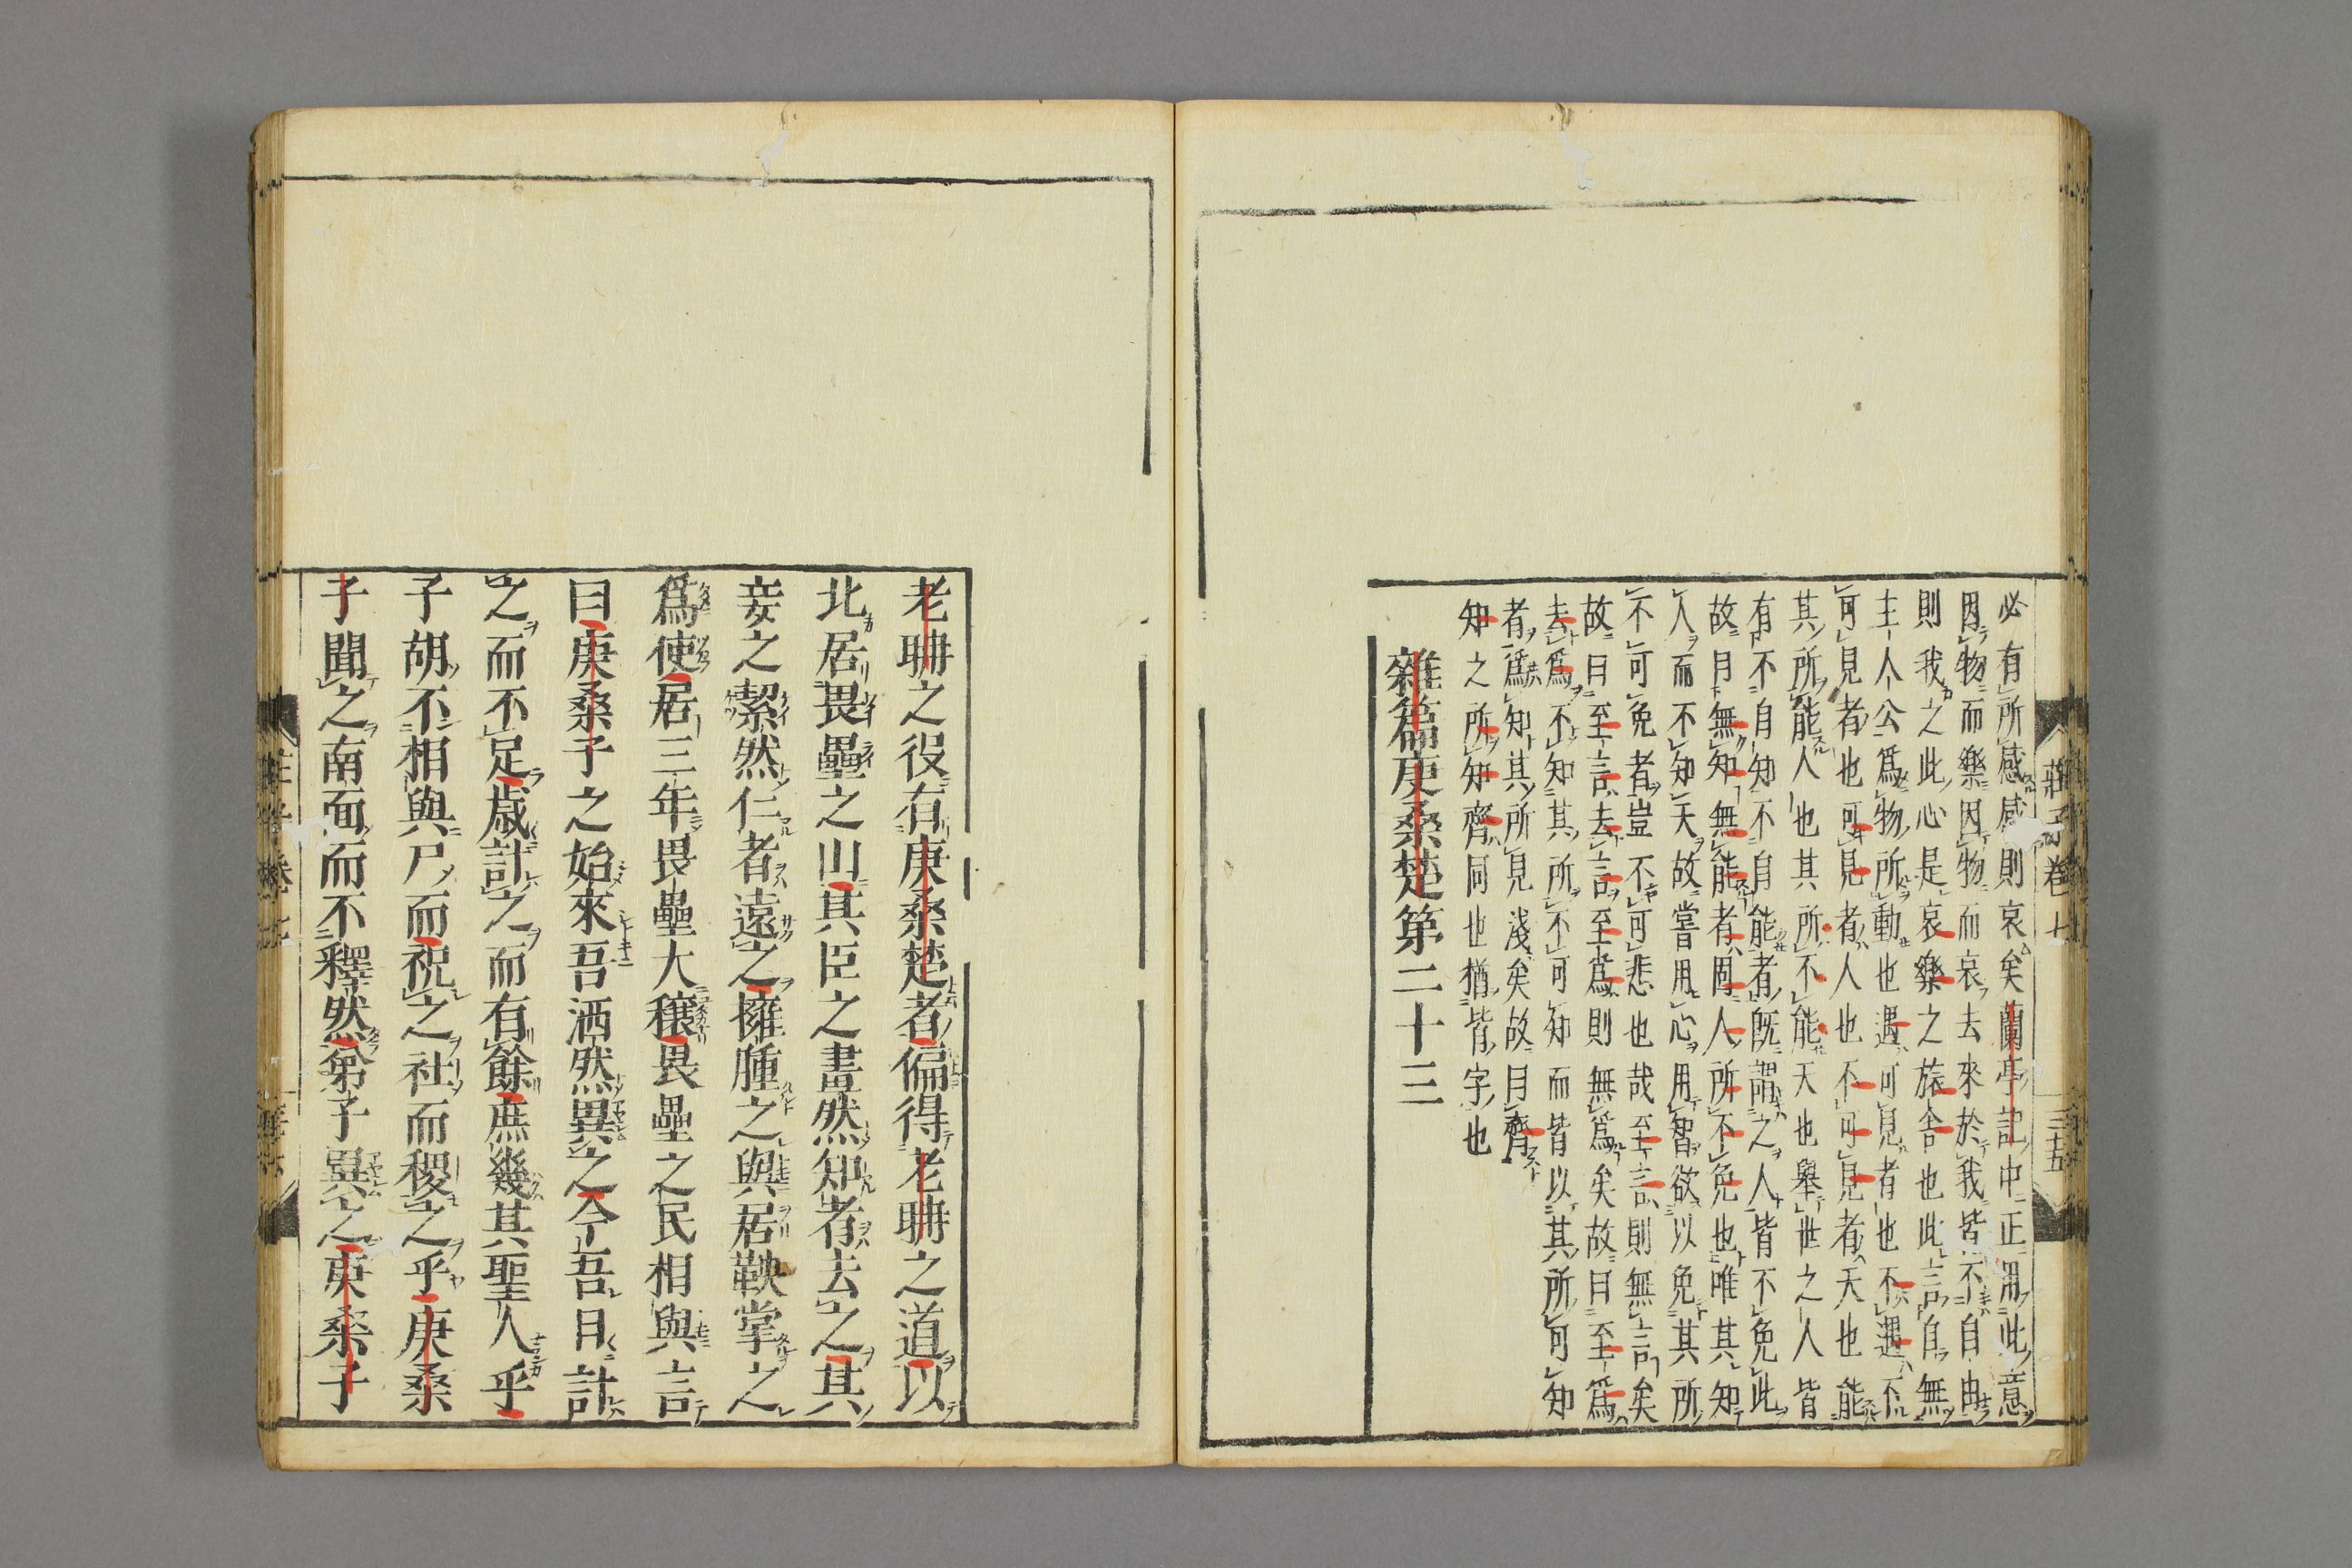 莊子卷七
三十五
必有所感感則哀矣蘭亭記中正用此意
因物而樂因物而哀去來於我皆不自由
則我之此心是哀樂之旅舍也此言自無
主人公爲物所動也遇可見者也不遇不
可見者也可見者人也不可見者天也能
其所能人也其所不能天也舉世之人皆
有不自知不自能者既謂之人皆不免此
故曰無知無能者固人所不免也唯其知
人而不知天故嘗用心用智欲以免其所
不可免者豈不可悲也哉至言則無言矣
故曰至言去言至爲則無爲矣故曰至爲
去爲不知其所不可知而皆以其所可知
者爲知其所見淺矣故曰齊
知之所知齊同也猶皆字也
雜篇庚桑楚第二十三
老聃之役有庚桑楚者偏得老聃之道以
北居畏壘之山其臣之畫然知者去之其
妾之絜然仁者遠之擁腫之與居鞅掌之
爲使居三年畏壘大穰畏壘之民相與言
曰庚桑子之始來吾洒然異之今吾日計
之而不足歲計之而有餘庶幾其聖人乎
子胡不相與尸而祝之社而稷之乎庚桑
子聞之南面而不釋然弟子異之庚桑子